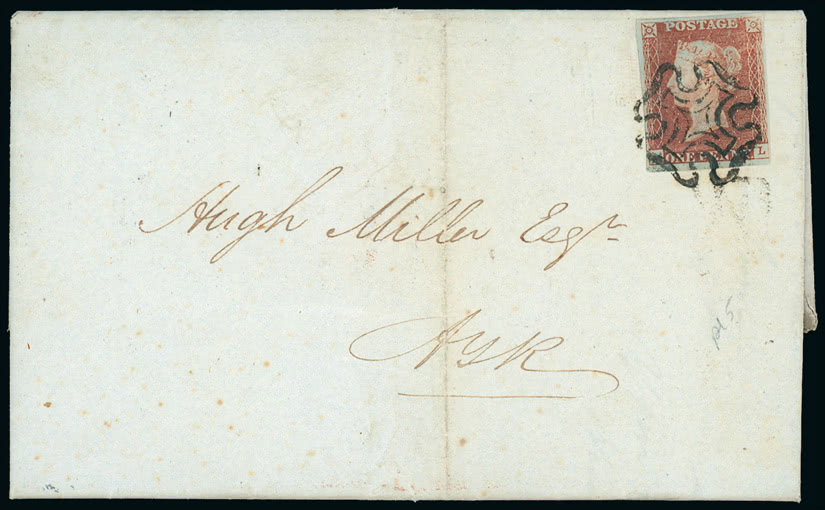 POSTAGE
ONE PENNY L
Hugh Miller Esqr
Ayr
pl 5